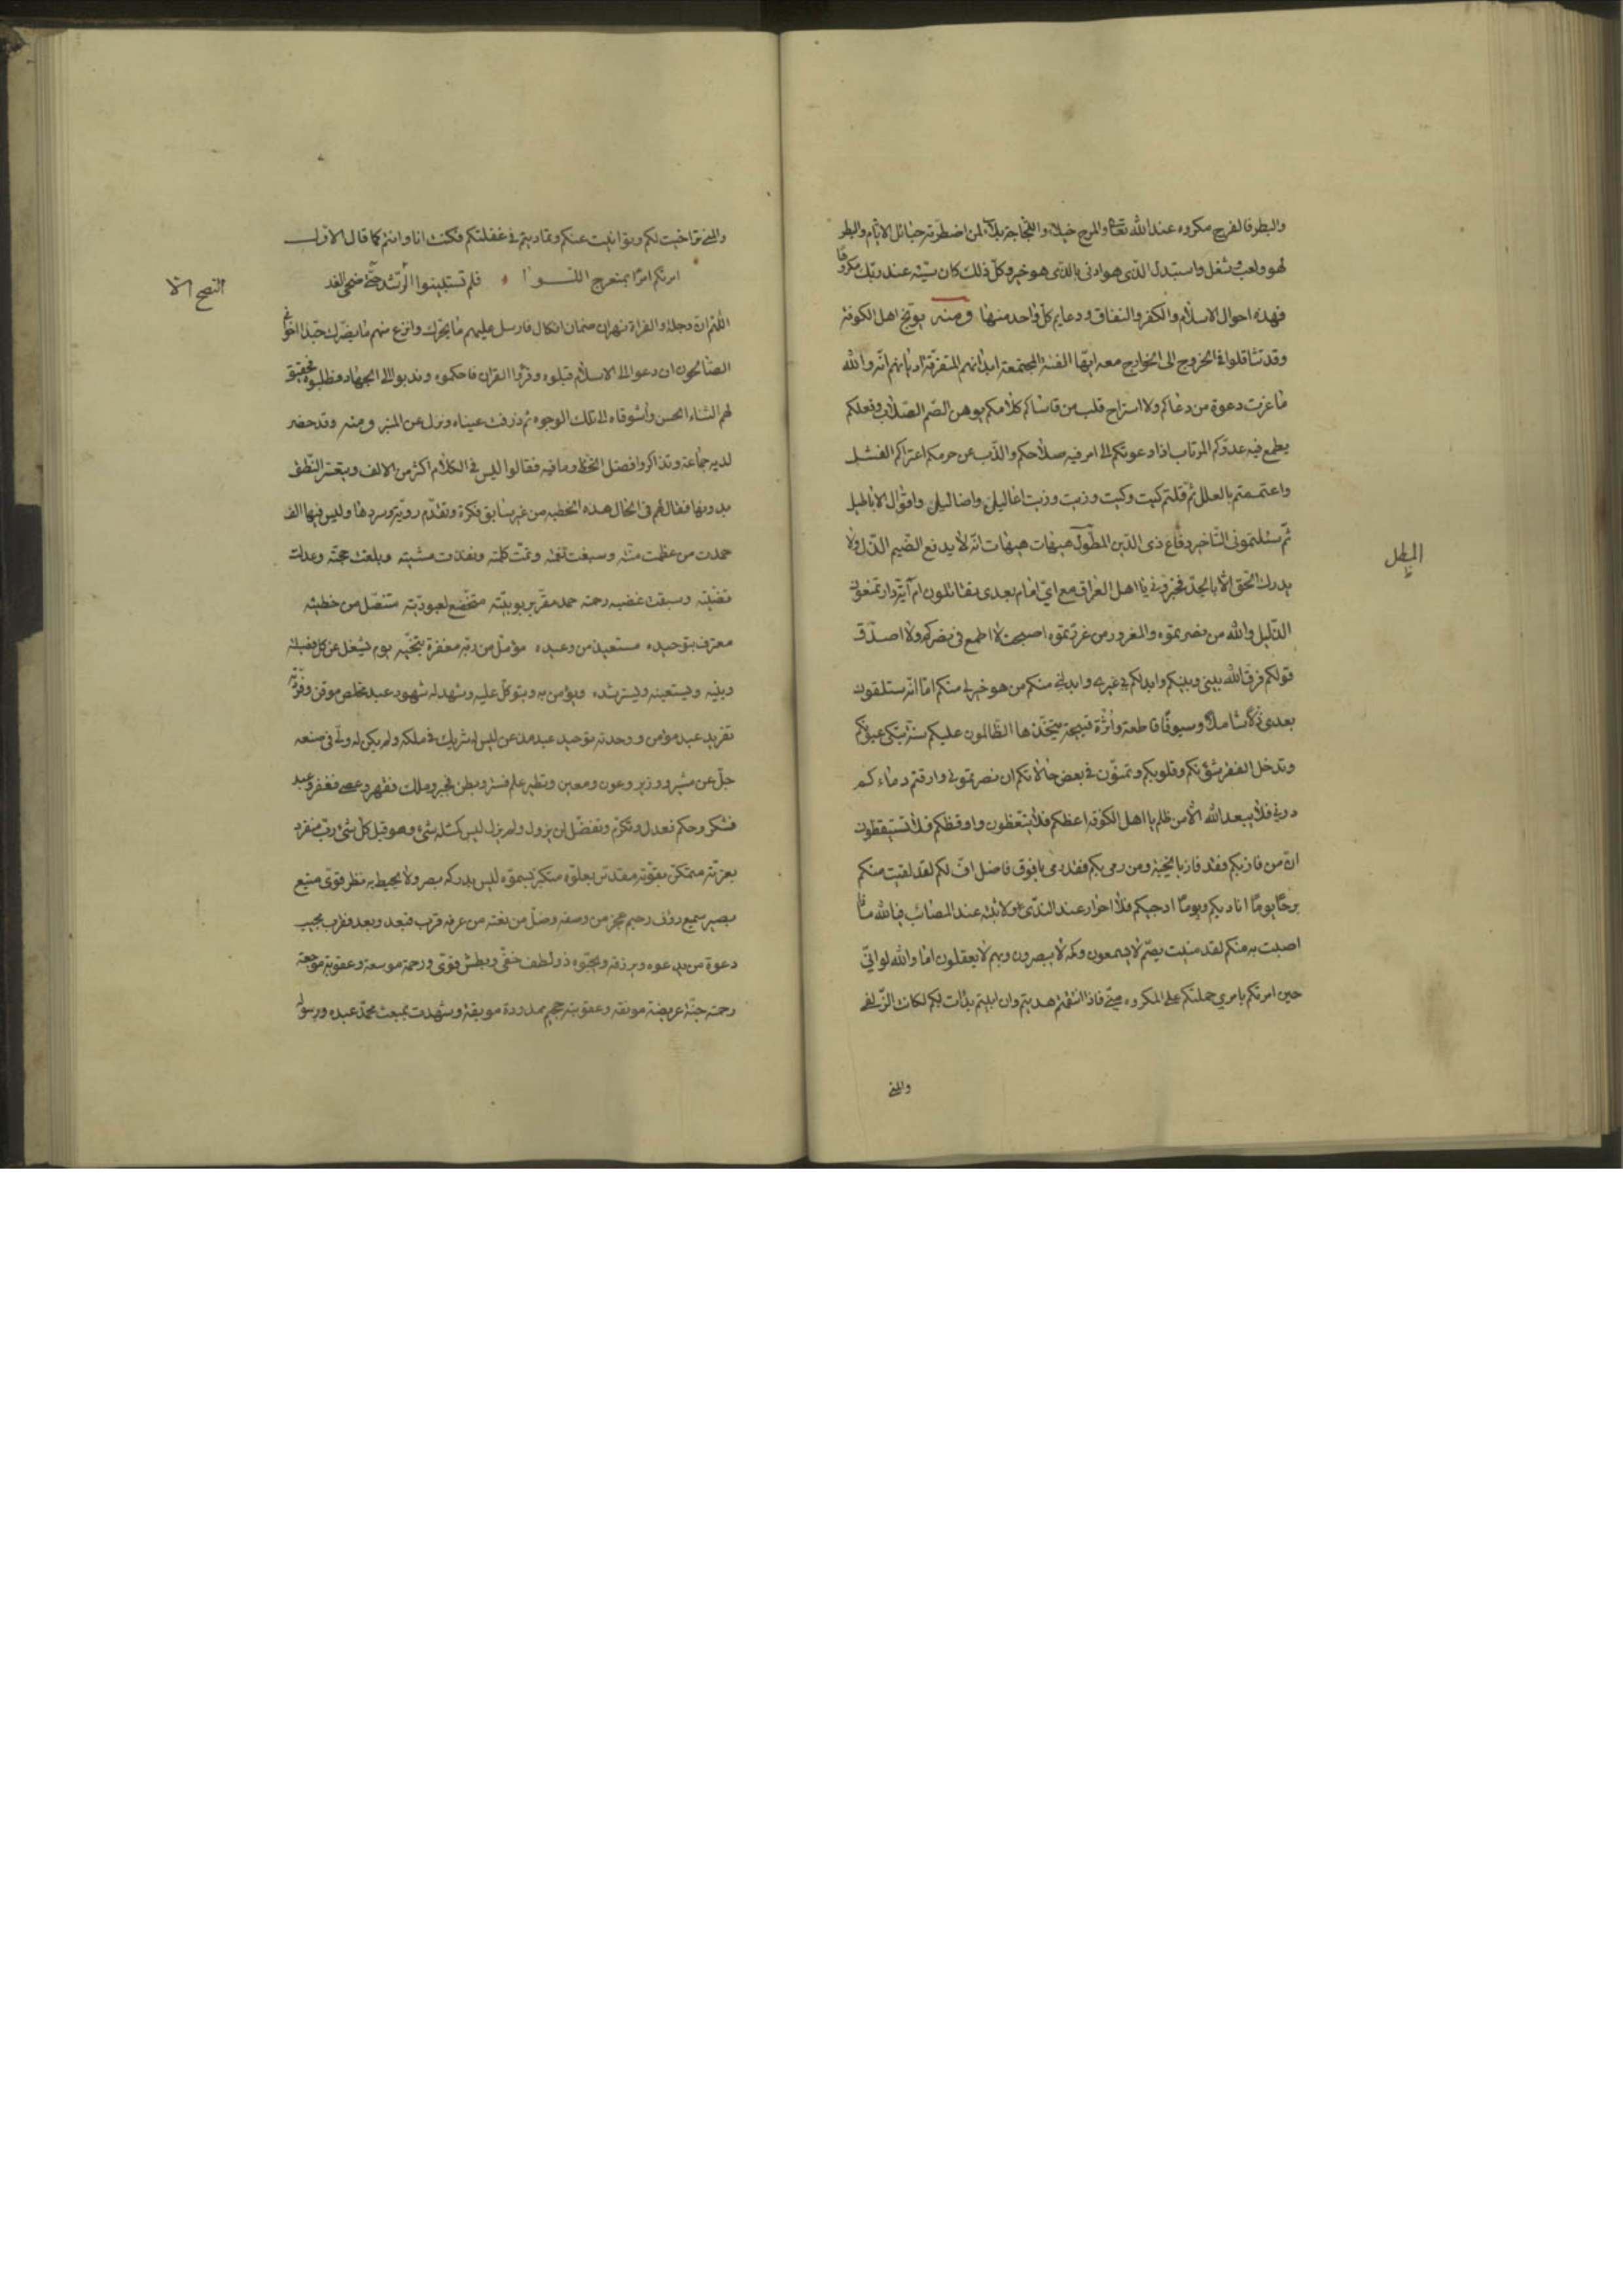 والبطر فالفرح مكروه عند الله تعالى والمرح خيلاء واللجاجة بلاء لمن اضطرته حبائل الاثام والبطر
لهو ولعب وشغل واستبدال الذى هو ادنى بالذى هو خير وكل ذلك كان سيّئه عند ربّك مكروها
فهذه احوال الاسلام والكفر والنفاق ودعايم كل واحد منها ومنه يوبّخ اهل الكوفة
وقد تثاقلوا فى الخروج الى الخوارج معه ايّها الفئة المجتمعة ابدانهم المتفرّقة اديانهم انّه والله
ما عزت دعوة من دعاكم ولا استراح قلب من قاساكم كلامكم يوهن الصّم الصّلاب وفعلكم
يطمع فيه عدوّكم المرتاب اذا دعوتكم الى امر فيه صلاحكم والذّب عن حرمكم اعتراكم الفشل
واعتصمتم بالعلل ثمّ قلتم كيت وكيت وذيت وذيت اغاليل واضاليل واقوال الاباطيل
ثمّ سئلتمونى التّاخير دفاع ذى الدّين المطول هيهات هيهات انّه لا يدفع الضّيم الذّل ولا
يدرك الحق الّا بالجدّ فخبّرونى يا اهل العراق مع اىّ امام بعدى تقاتلون ام ايّة دار تمنعون
الذّليل والله من نصرتموه والمغرور من غررتموه اصبحت لا اطمع فى نصركم ولا اصدّق
قولكم فرق الله بينى وبينكم وابدلكم بى غيرى وابدلنى منكم من هو خير لى منكم اما انّه ستلقون
بعدى ذلّا شاملا وسيوفا قاطعة واثرة قبيحة يتخذها الظالمون عليكم سنّة تبكى عيونكم
وتدخل الفقر بيوتكم وقلوبكم وتمنّون فى بعض حالاتكم ان نصرتمونى وارقتم دماءكم
دونى فلا يبعد الله الّا من ظلم يا اهل الكوفة اعظكم فلا تتعظون واوقظكم فلا تستيقظون
انّ من فاز بكم فقد فاز بالخيبة ومن رمى بكم فقد رمى بافوق ناصل افّ لكم لقد لقيت منكم
برحا يوما اناديكم ويوما اناجيكم فلا احرار عند الندّى ولا ثقة عند المصائب فيا لله ماذا
اصبت به منكم لقد منيت بصمّ لا يسمعون وكمه لا يبصرون وبهم لا يعقلون اما والله لو انّى
حين امرتكم بامرى حملتكم على المكروه منّى فاذا استقمتم هديتم وان ابيتم بدأت بكم لكانت الزّلفى
والمنى
الباطل
والمنى تراخيت لكم وتوانيت عنكم وتماديتم فى غفلتكم فكنت انا وانتم كما قال الاول
امرتكم امرا بمنعرج اللوا فلم تستبينوا الرّشد حتى ضحى الغد
النصح الا
اللهم ان دجلة والفراة نهران صمان ابكمان فارسل عليهم ماء بحرك وانزع منهم ماء نصرك حبذا اخوانى
الصّالحون ان دعوا الى الاسلام قبلوه وقرؤا القران فاحكموه وندبوا الى الجهاد فطلبوه فحقيق
لهم الثناء الحسن واشوقاه الى تلك الوجوه ثم ذرفت عيناه ونزل عن المنبر ومنه وقد حضر
لديه جماعة وتذاكروا فضل الخط وما فيه فقالوا ليس فى الكلام اكثر من الالف ويتعسر النّطق
بدونها فقال لهم فى الحال هذه الخطبه من غير سابق فكرة وتقدّم رويّة وسردها وليس فيها الف
حمدت من عظمت منّته وسبغت نعمته وتمّت كلمته ونفذت مشيته وبلغت حجّته وعدلت
قضيّته وسبقت غضبه رحمته حمد مقر بربوبيّته متخضّع لعبوديّته متنصّل من خطيئته
معترف بتوحيده مستعيذ من وعيده مؤمّل من ربّه مغفرة تنجيه يوم يشغل عن كل فصيلته
وبنيه ونستعينه ونسترشده ونؤمن به ونتوكل عليه وشهدت له شهود عبد مخلص موقن وفرّدته
تفريد عبد مؤمن ووحدته توحيد عبد مذعن ليس له شريك فى ملكه ولم يكن له ولى فى صنعه
جلّ عن مشير ووزير وعون ومعين ونظير علم فستر وبطن فخبر وملك فقهر وعصى فغفر وعبد
فشكر وحكم فعدل وتكرّم وتفضّل لن يزول ولم يزل ليس كمثله شئ وهو قبل كل شئ ربّ متفرد
بعزّته متمكن بقوّته متقدّس بعلوّه متكبّر بسموّه ليس يدركه بصر ولا يحيط به نظر قوىّ منيع
بصير سميع رؤف رحيم عجز من وصفه وضلّ من نعته من عرفه قرب فبعد وبعد فقرب يجيب
دعوة من يدعوه ويرزقه ويحبوه ذو لطف خفىّ وبطش قوىّ ورحمة موسعة وعقوبة موجعة
رحمته جنّة عريضة مونقه وعقوبته جحيم ممدودة موبقة وشهدت ببعث محمد عبده ورسوله